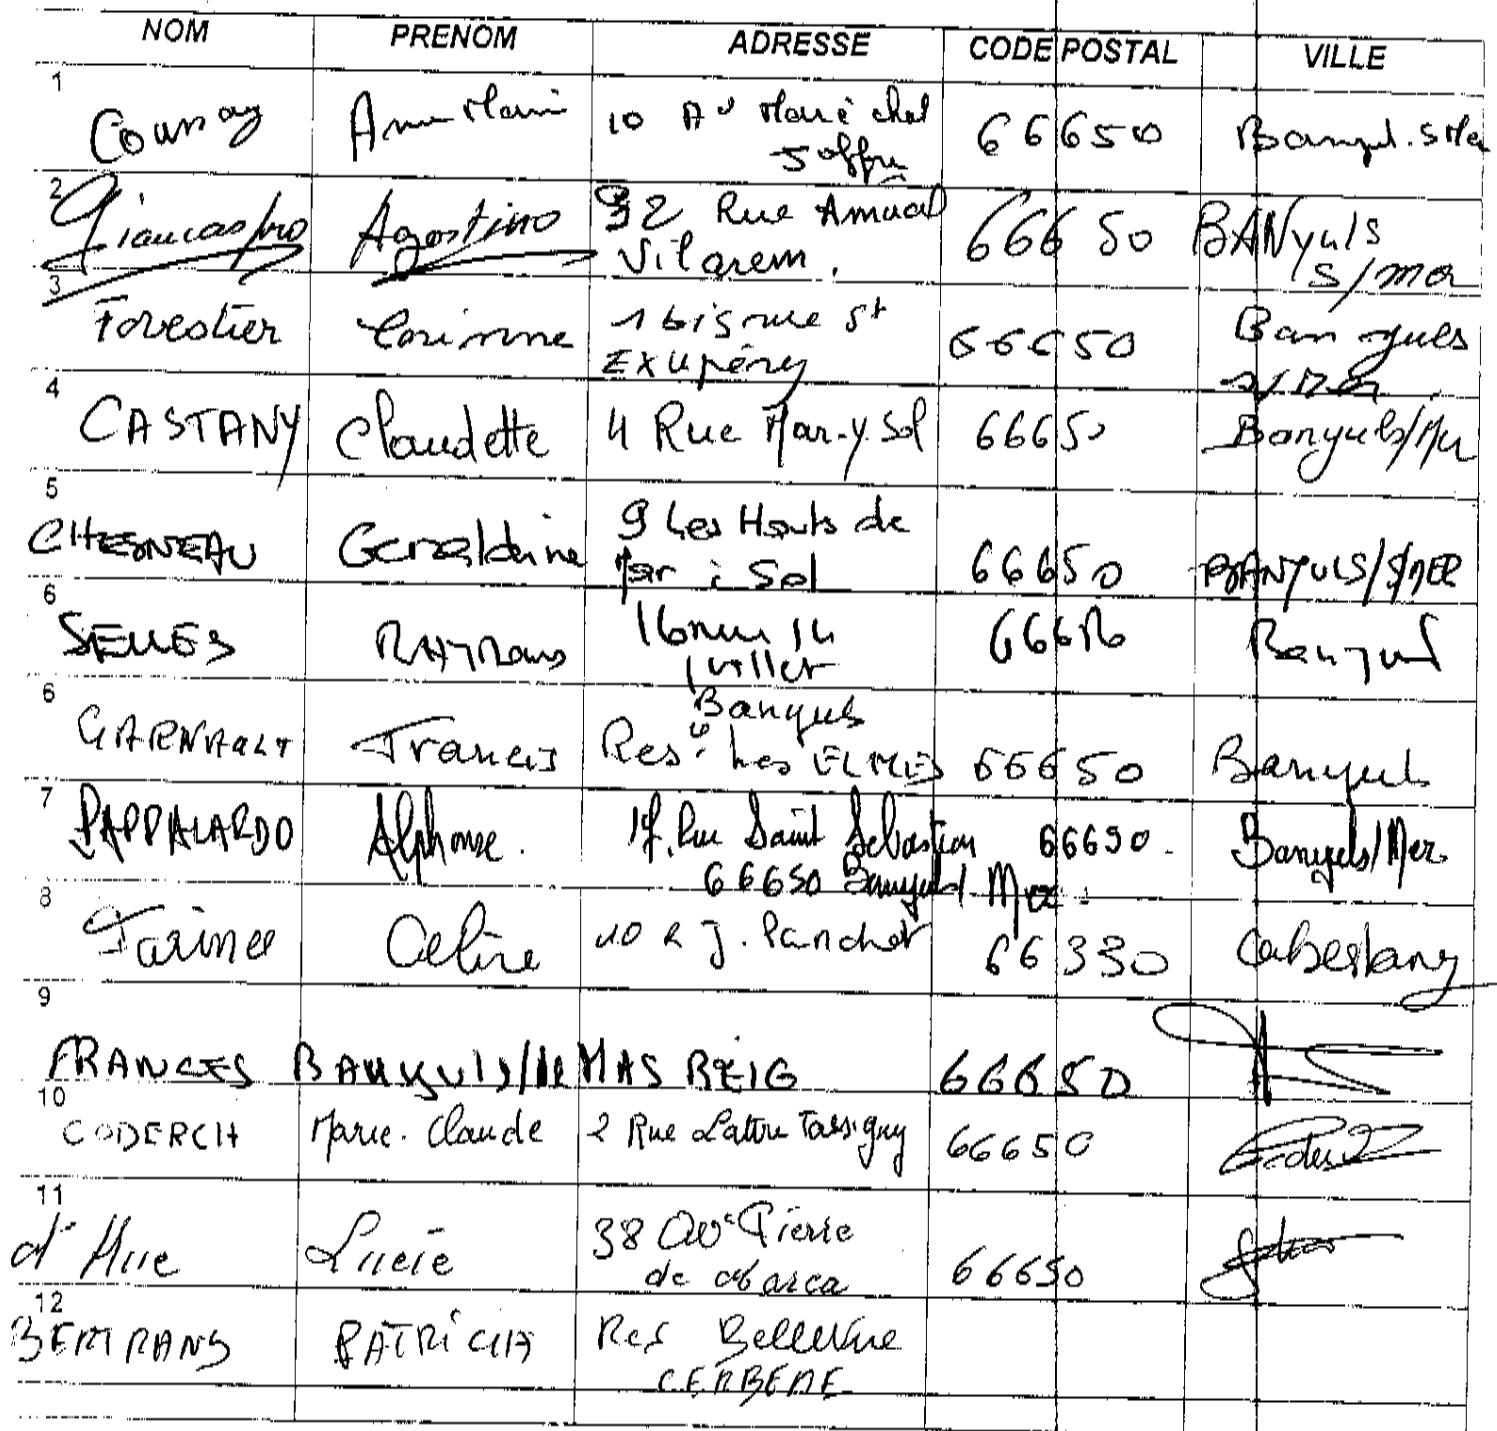 NOM PRENOM ADRESSE CODE POSTAL VILLE
1
Anne Marie 10 Av Maréchal 66650 Banyul. s Mer
Joffre
2
Giancaspro Agostino 32 Rue Amiral 66650 BANyuls
Vilarem. S/mer
3
Forestier Corinne 1 bis rue St 66650 Banyuls
Exupéry s/mer
4
CASTANY Claudette 4 Rue Mar-y-Sol 66650 Banyuls/Mer
5
CHESNEAU Geraldine 9 Les Hauts de
Mar i Sol 66650 BANYULS/S/MER
6
SELLES 16 rue 14 Banyuls
juillet
6
Banyuls
GARNAULT Francis Res. Les ELMES 66650 Banyuls
7
PAPPALARDO Alphonse. 17, Rue Saint Sebastien 66650. Banyuls/Mer
66650 Banyuls/Mer.
8
Farines Celine 10 R J. Panchot 66330 Cabestany
9
FRANCES BANYULS/M MAS REIG 66650
10
CODERCH Marie. Claude 2 Rue Lattre Tassigny 66650
11
d'Hue Lucie 38 Av Pierre 66650
de Marca
12
BERTRAND PATRICIA Res Bellevue
CERBERE